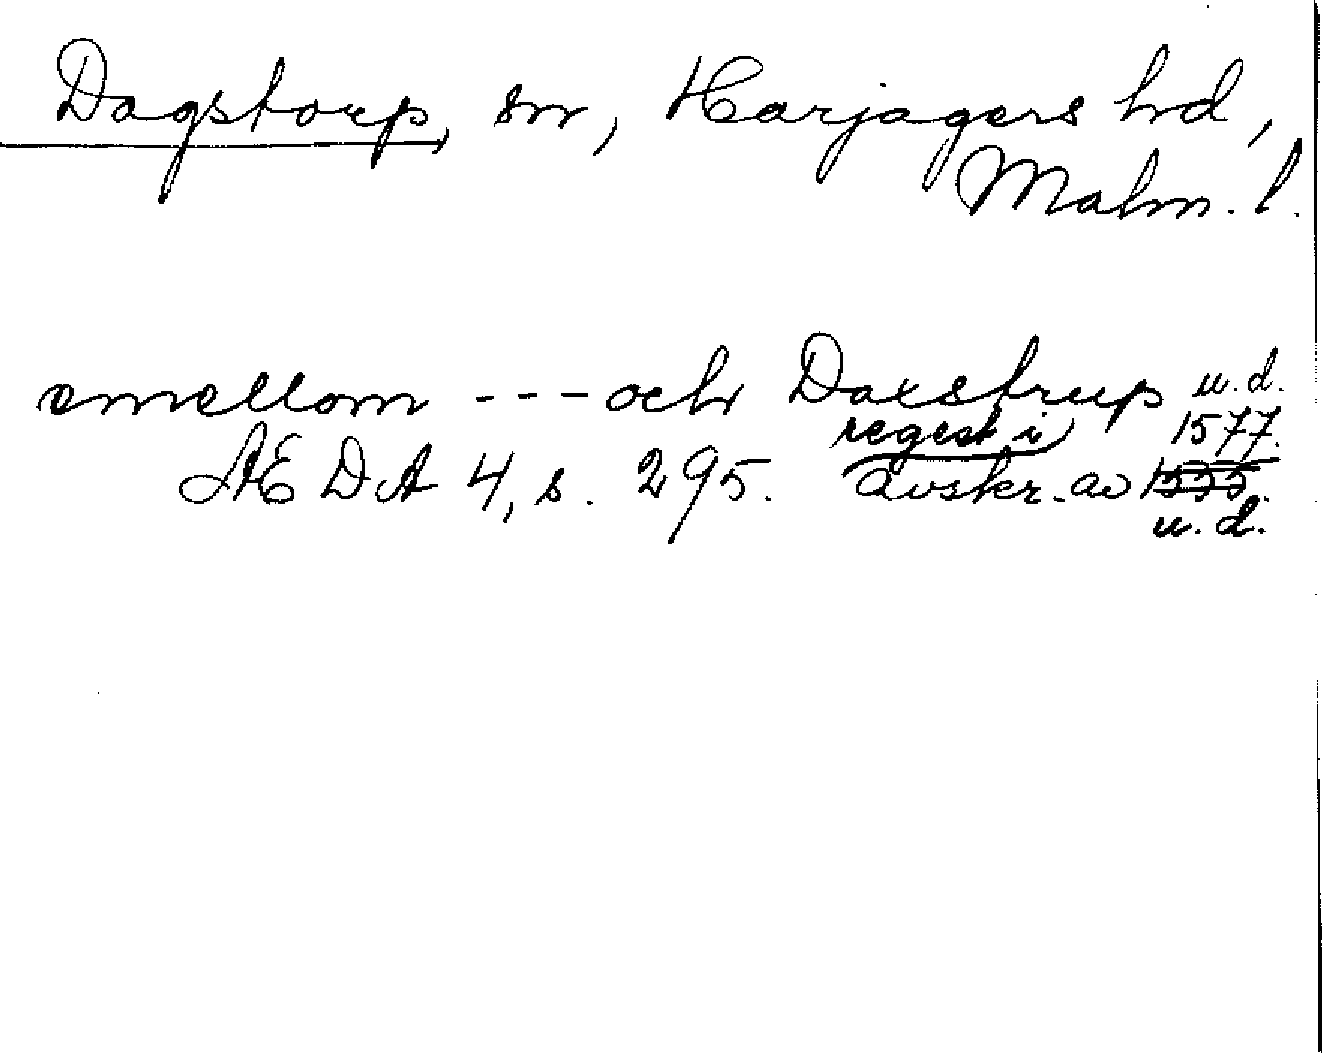 Dagstorp, sn, Harjagers hd,
Malm. l.
emellom --- och Daxstrup u.d.
regest i 1577.
ÆDA 4, s. 295. avskr. av 1555.
u. d.